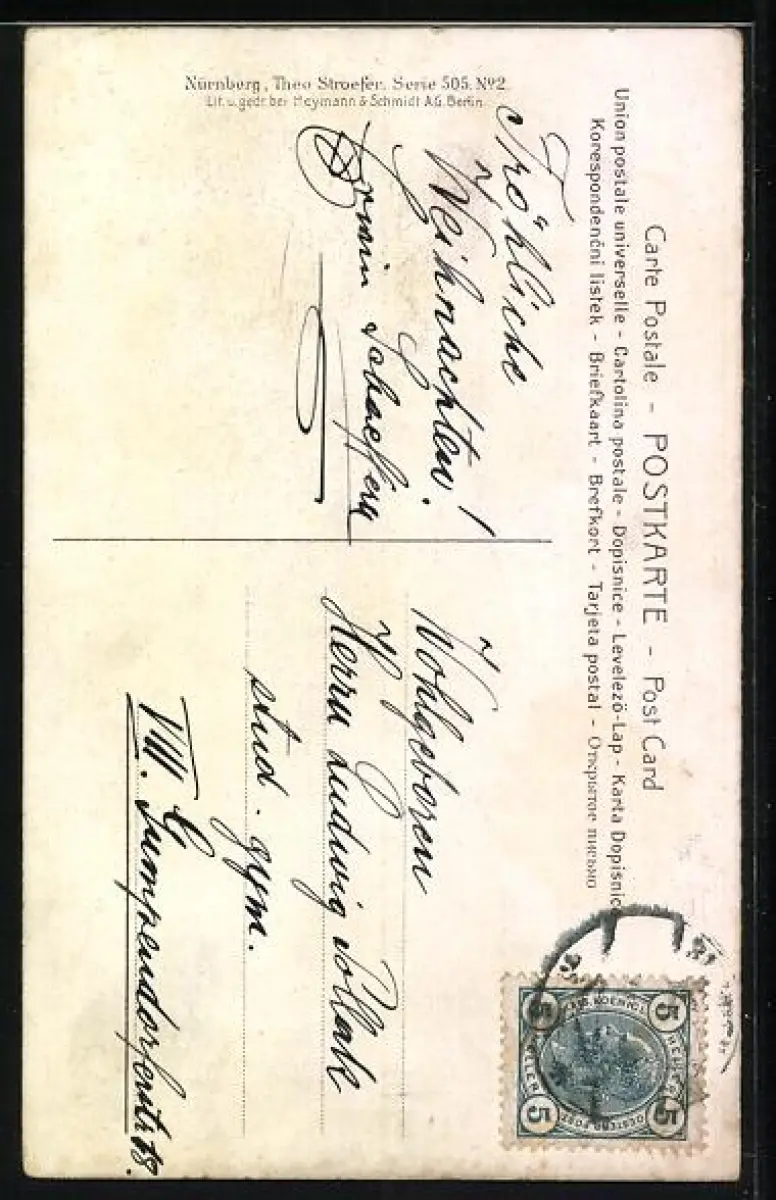 Carte Postale - POSTKARTE - Post Card
Union postale universelle - Cartolina postale - Dopisnice - Levelezö-Lap - Karta Dopisnic
Korespondenčni listek - Briefkaart - Brefkort - Tarjeta postal - Открытое письмо
Nürnberg, Theo Stroefer. Serie 505. Nº2.
Lit. u. gedr. bei Heymann & Schmidt A.G. Berlin.
Fröhliche
Weihnachten!
Erwin
Wohlgeboren
Herrn Ludwig Pollak
stud. gym.
VIII.
Gumpendorferstr.
5
5
5
5